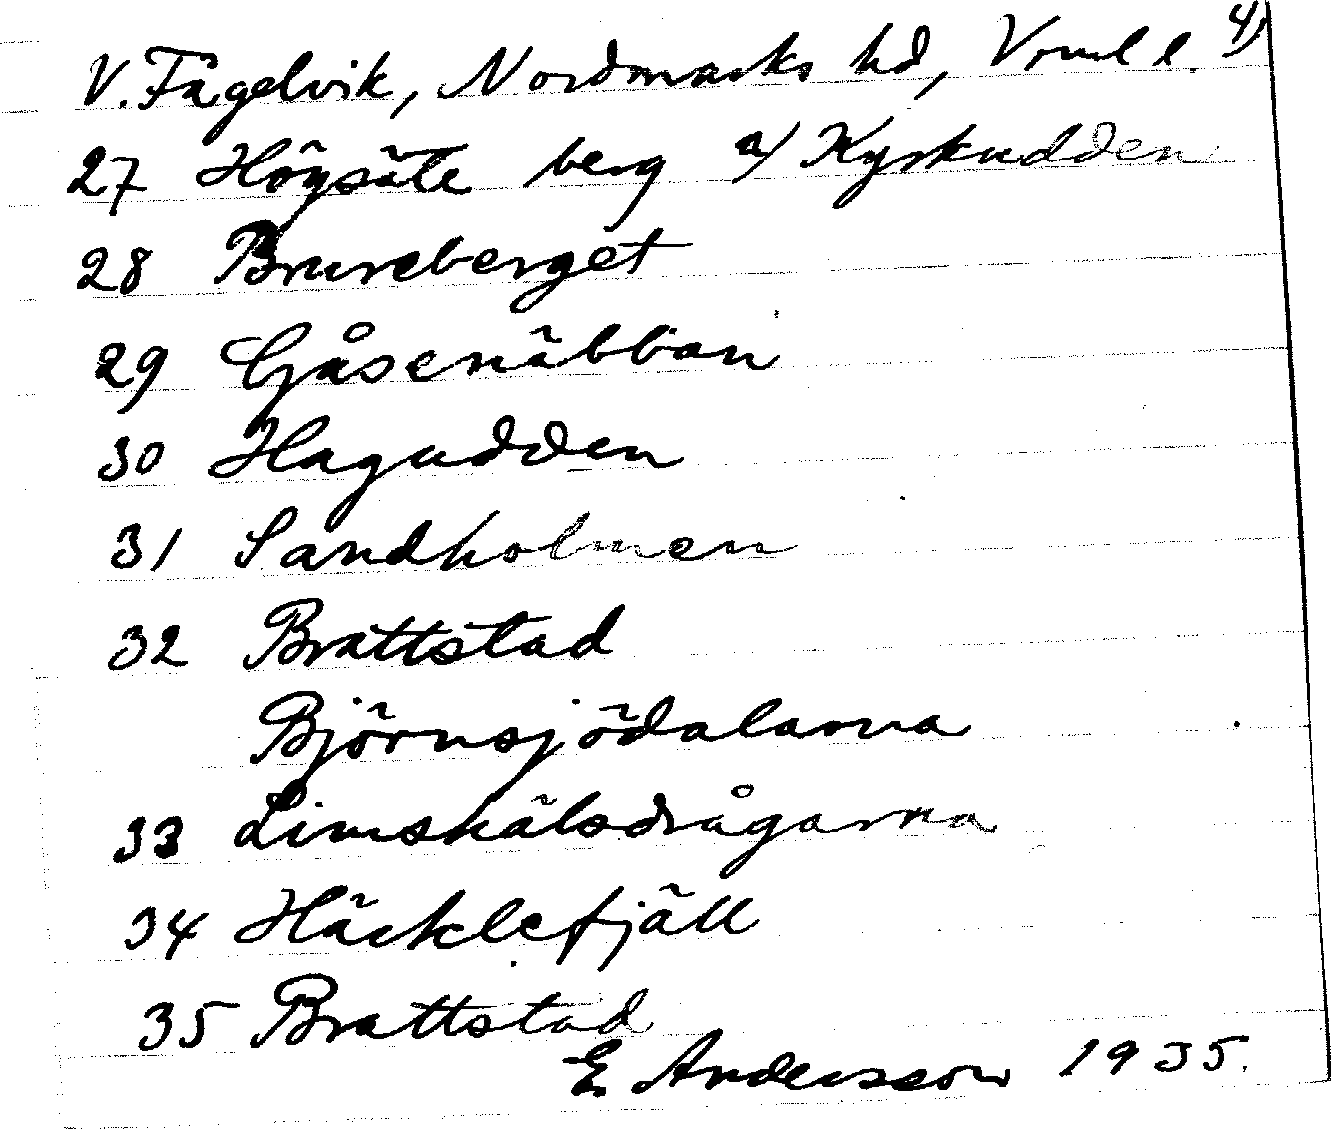 V. Fågelvik, Nordmarks hd, Vrml l. 4)
27 Högsäte berg a/ Kyrkudden
28 Brureberget
29 Gåsenäbban
30 Hagudden
31 Sandholmen
32 Brattstad
Björnsjödalarna
33 Limskålsdrågarna
34 Häcklefjäll
35 Brattstad
E. Andersson 1935.